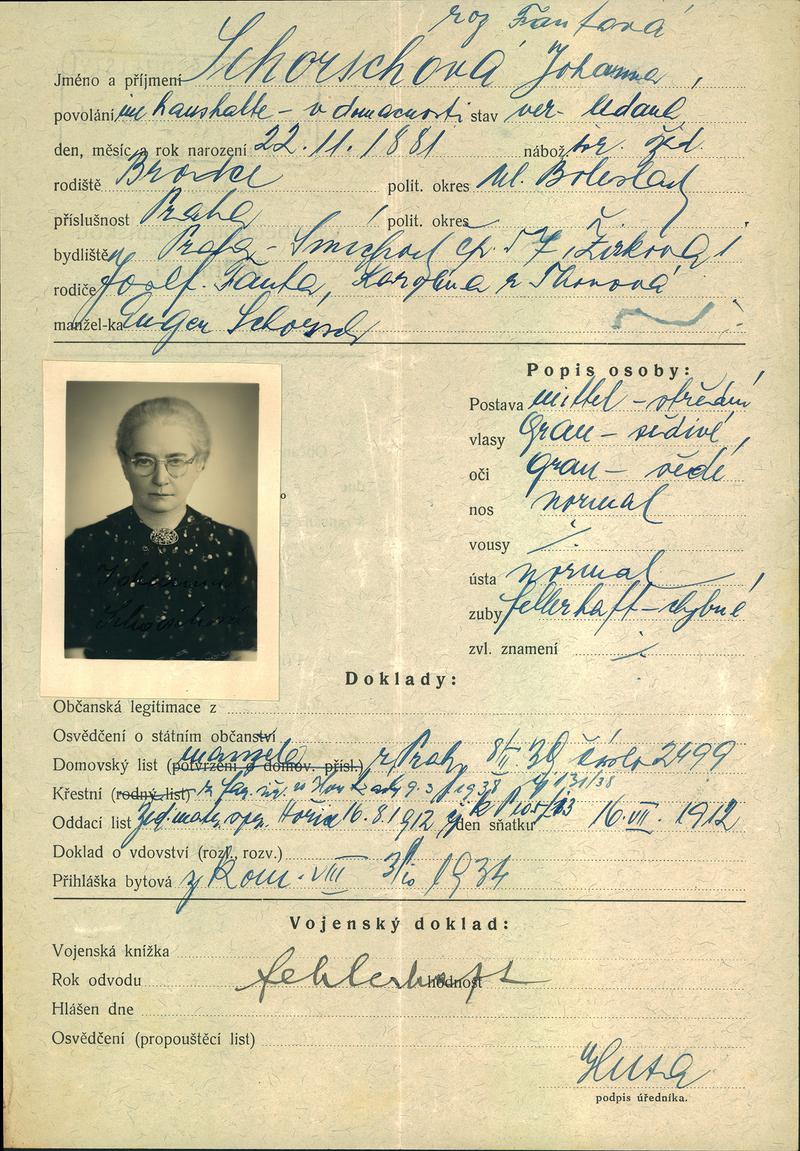 roz Fantová
Jméno a příjmení Schorschová Johanna,
povolání im Haushalte – v domacnosti stav ver-
den, měsíc a rok narození 22. 11. 1881 nábož.
rodiště Brodce polit. okres Ml. Boleslav
příslušnost Praha polit. okres
bydliště Praha – Smíchov čp.
rodiče Josef Fanta, Karolina r. Thonová
manžel-ka Eugen Schorsch
Popis osoby:
Postava mittel – střední
vlasy Grau – šedivé,
oči Grau – šedé
nos normal
vousy ./.
ústa normal
zuby fellerhaft – chybné
zvl. znamení ./.
Johanna
Schorschová
Doklady:
Občanská legitimace z
Osvědčení o státním občanství
manžela
Domovský list (potvrzení o domov. přísl.) z Prahy číslo 2499
Křestní (rodný list) 9. 3. 1938
Oddací list Žid. Hořice 16. 8. 1912 den sňatku 16. VII. 1912
Doklad o vdovství (rozl., rozv.)
Přihláška bytová z Kom. VIII 1934
Vojenský doklad:
Vojenská knížka
Rok odvodu fehlerhaft hodnost
Hlášen dne
Osvědčení (propouštěcí list)
podpis úředníka.